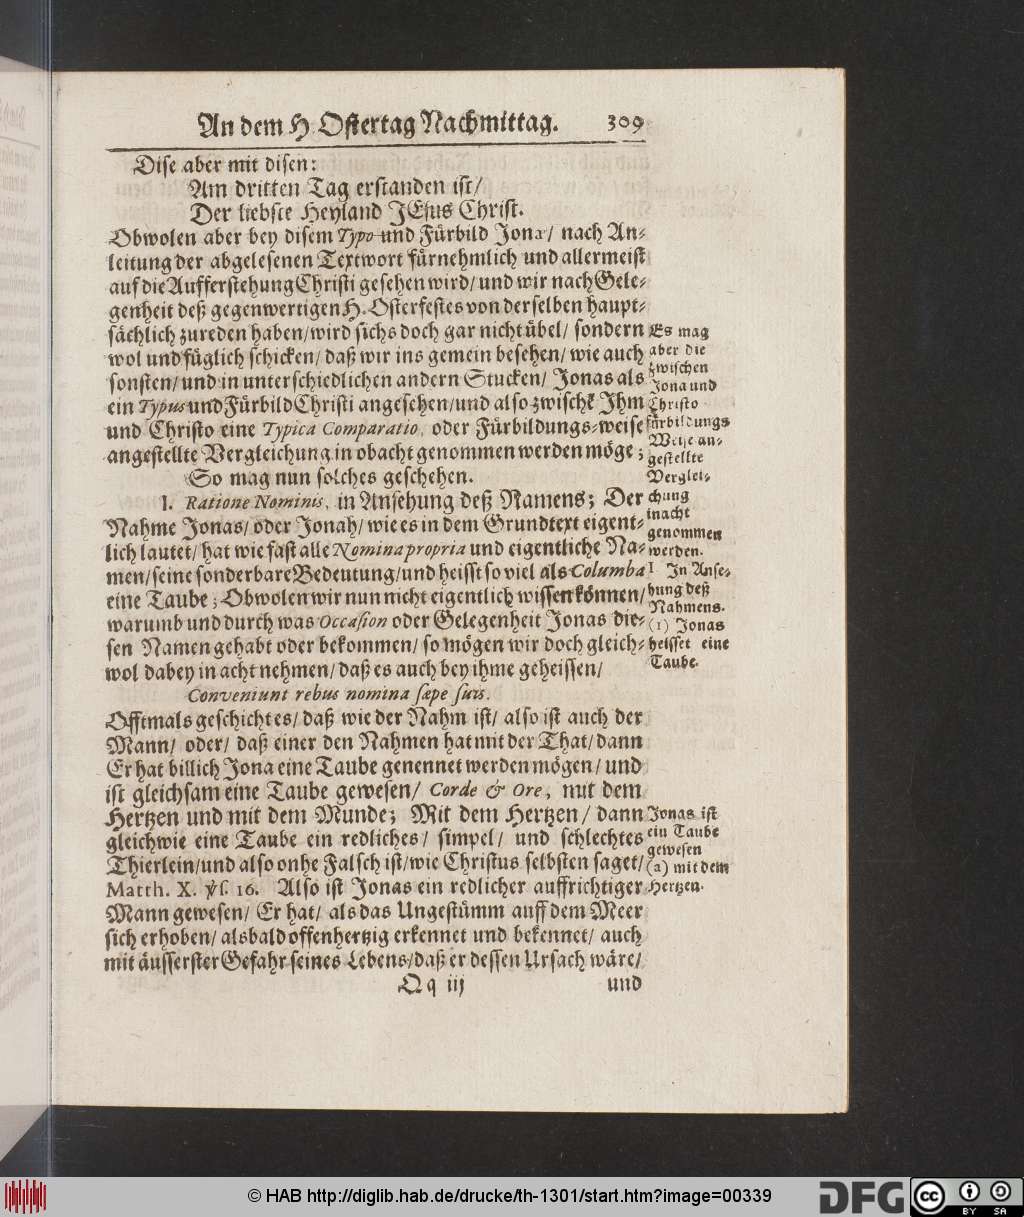 An dem H Ostertag Nachmittag. 309
Dise aber mit disen:
Am dritten Tag erstanden ist/
Der liebste Heyland JEsus Christ.
Obwolen aber bey disem Typo und Fürbild Jona/ nach An-
leitung der abgelesenen Textwort fürnehmlich und allermeist
auf die Aufferstehung Christi gesehen wird/ und wir nach Gele-
genheit deß gegenwertigen H. Osterfestes von derselben haupt-
sächlich zureden haben/ wird sichs doch gar nicht übel/ sondern
wol und füglich schicken/ daß wir ins gemein besehen/ wie auch
sonsten/ und in unterschiedlichen andern Stucken/ Jonas als
ein Typus und Fürbild Christi angesehen/ und also zwischẽ Ihm
und Christo eine Typica Comparatio, oder Fürbildungs-weise
angestellte Vergleichung in obacht genommen werden möge;
So mag nun solches geschehen.
I. Ratione Nominis, in Ansehung deß Namens; Der
Nahme Jonas/ oder Jonah/ wie es in dem Grundtext eigent-
lich lautet/ hat wie fast alle Nomina propria und eigentliche Na-
men/ seine sonderbare Bedeutung/ und heisst so viel als Columba
eine Taube; Obwolen wir nun nicht eigentlich wissen können/
warumb und durch was Occasion oder Gelegenheit Jonas die-
sen Namen gehabt oder bekommen/ so mögen wir doch gleich-
wol dabey in acht nehmen/ daß es auch bey ihme geheissen/
Conveniunt rebus nomina sæpe suis.
Offtmals geschicht es/ daß wie der Nahm ist/ also ist auch der
Mann/ oder/ daß einer den Nahmen hat mit der That/ dann
Er hat billich Jona eine Taube genennet werden mögen/ und
ist gleichsam eine Taube gewesen/ Corde & Ore, mit dem
Hertzen und mit dem Munde; Mit dem Hertzen/ dann
gleichwie eine Taube ein redliches/ simpel/ und schlechtes
Thierlein/ und also onhe Falsch ist/ wie Christus selbsten saget/
Matth. X. vs. 16. Also ist Jonas ein redlicher auffrichtiger
Mann gewesen/ Er hat/ als das Ungestümm auff dem Meer
sich erhoben/ alsbald offenhertzig erkennet und bekennet/ auch
mit äusserster Gefahr seines Lebens/ daß er dessen Ursach wäre/
Qq iij und
Es mag
aber die
zwischen
Jona und
Christo
fürbildungs
Weise an-
gestellte
Verglei-
chung
inacht
genommen
werden.
I In Anse-
hung deß
Nahmens.
(1) Jonas
heisset eine
Taube.
Jonas ist
ein Taube
gewesen
(a) mit dem
Hertzen.
© HAB http://diglib.hab.de/drucke/th-1301/start.htm?image=00339
DFG
cc BY SA